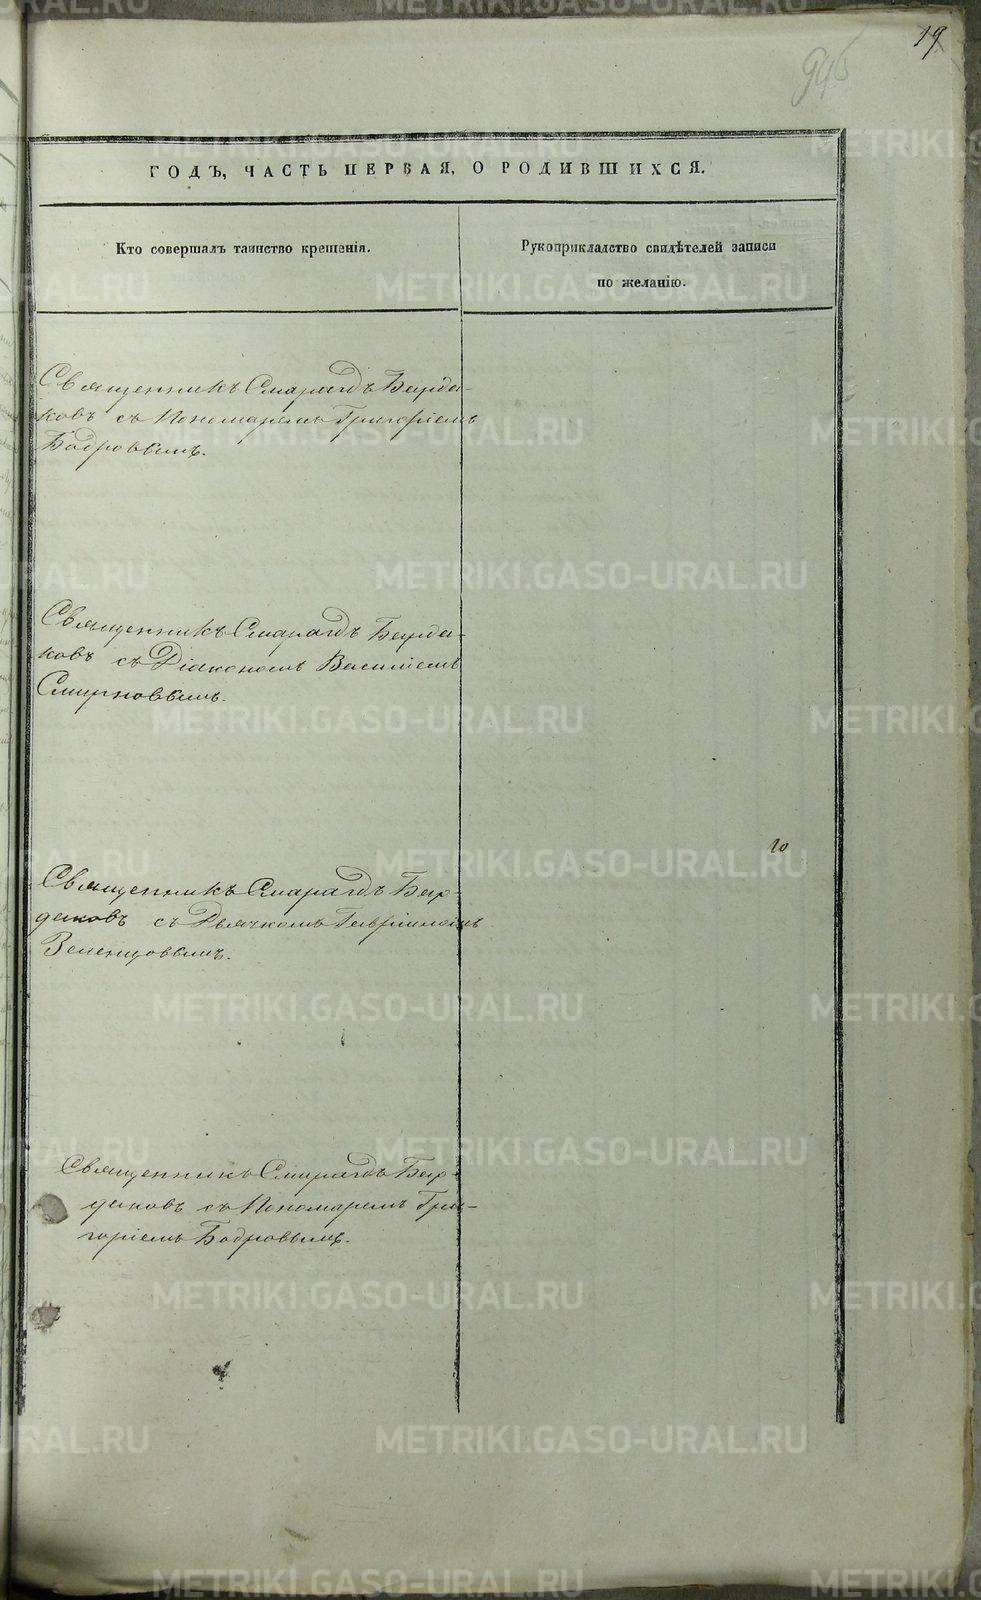 19
945
ГОДЪ, ЧАСТЬ ПЕРВАЯ, О РОДИВШИХСЯ.
Кто совершалъ таинство крещенія.
Рукоприкладство свидѣтелей записи
по желанію.
Священникъ Смарагдъ Бурда-
ковъ съ Пономаремъ Григоріемъ
Бодровымъ.
Священникъ Смарагдъ Бурда-
ковъ съ Діакономъ Василіемъ
Смирновымъ.
10
Священникъ Смарагдъ Бур-
даковъ съ Дьячкомъ Гавріиломъ
Земенцовымъ.
Священникъ Смарагдъ Бур-
даковъ съ Пономаремъ Гри-
горіемъ Бодровымъ.
METRIKI.GASO-URAL.RU